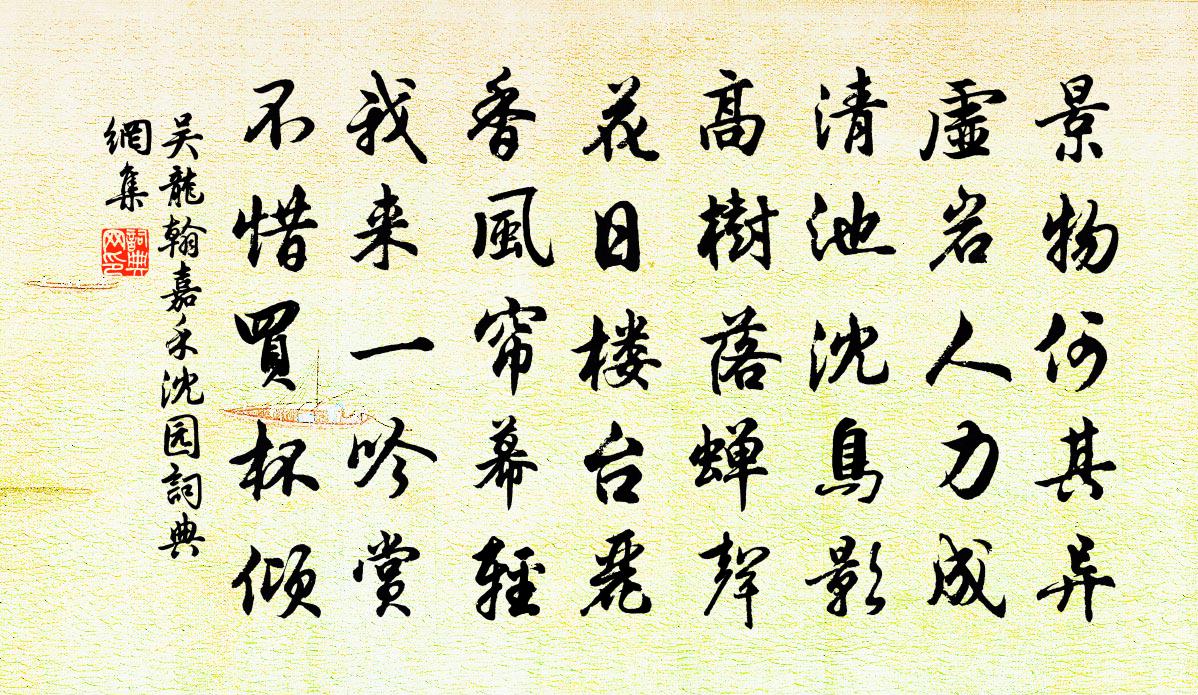 景物何其异
虚岩人力成
清池沈鳥影
高樹落蝉聲
花日楼台麗
香風帘幕輕
我来一吟賞
不惜買杯傾
吴龍翰嘉禾沈园詞典
網集
詞典
网印